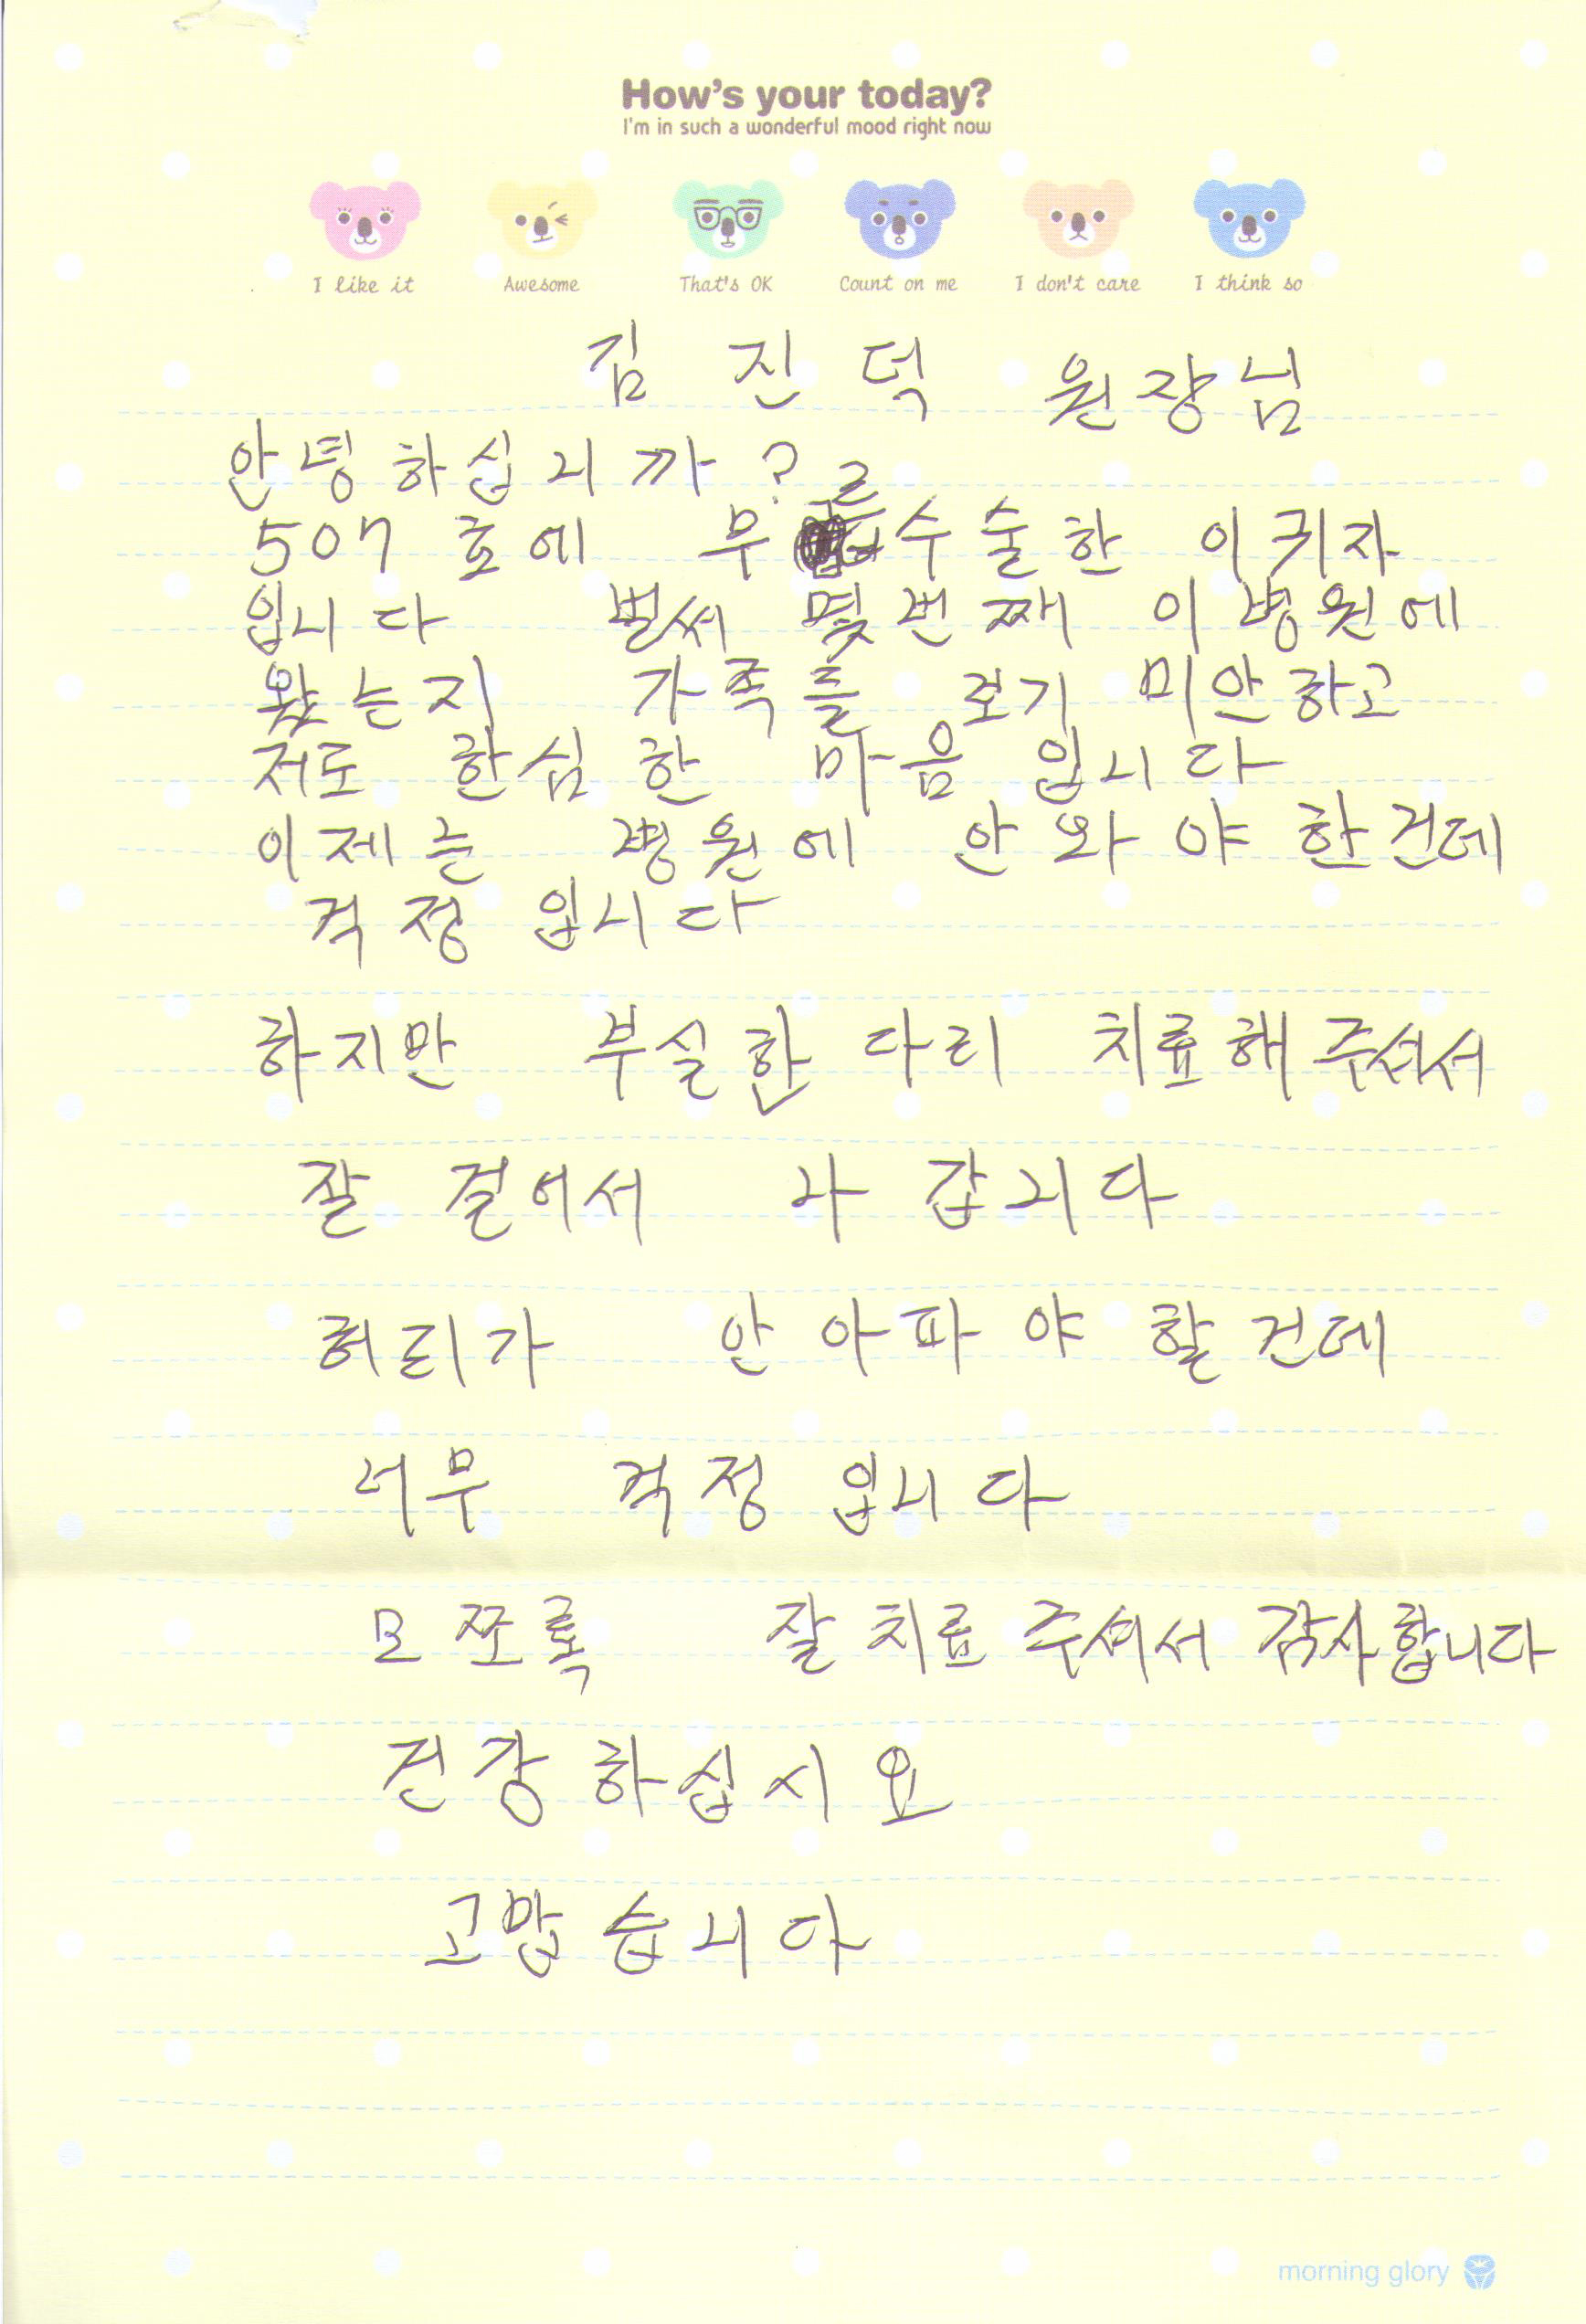 How's your today?
I'm in such a wonderful mood right now
I like it Awesome That's OK Count on me I don't care I think so
김 진 덕 원장님
안녕하십니까?
507 호에 무릎수술한 이귀자
입니다 벌써 몇번째 이병원에
왔는지 가족들 보기 미안하고
저도 한심한 마음 입니다
이제는 병원에 안와야한건데
걱정입니다
하지만 부실한 다리 치료해주셔서
잘 걸어서 나갑니다
허리가 안아파야 할건데
너무 걱정입니다
모쪼록 잘치료주셔서 감사합니다
건강하십시요
고맙습니다
morning glory